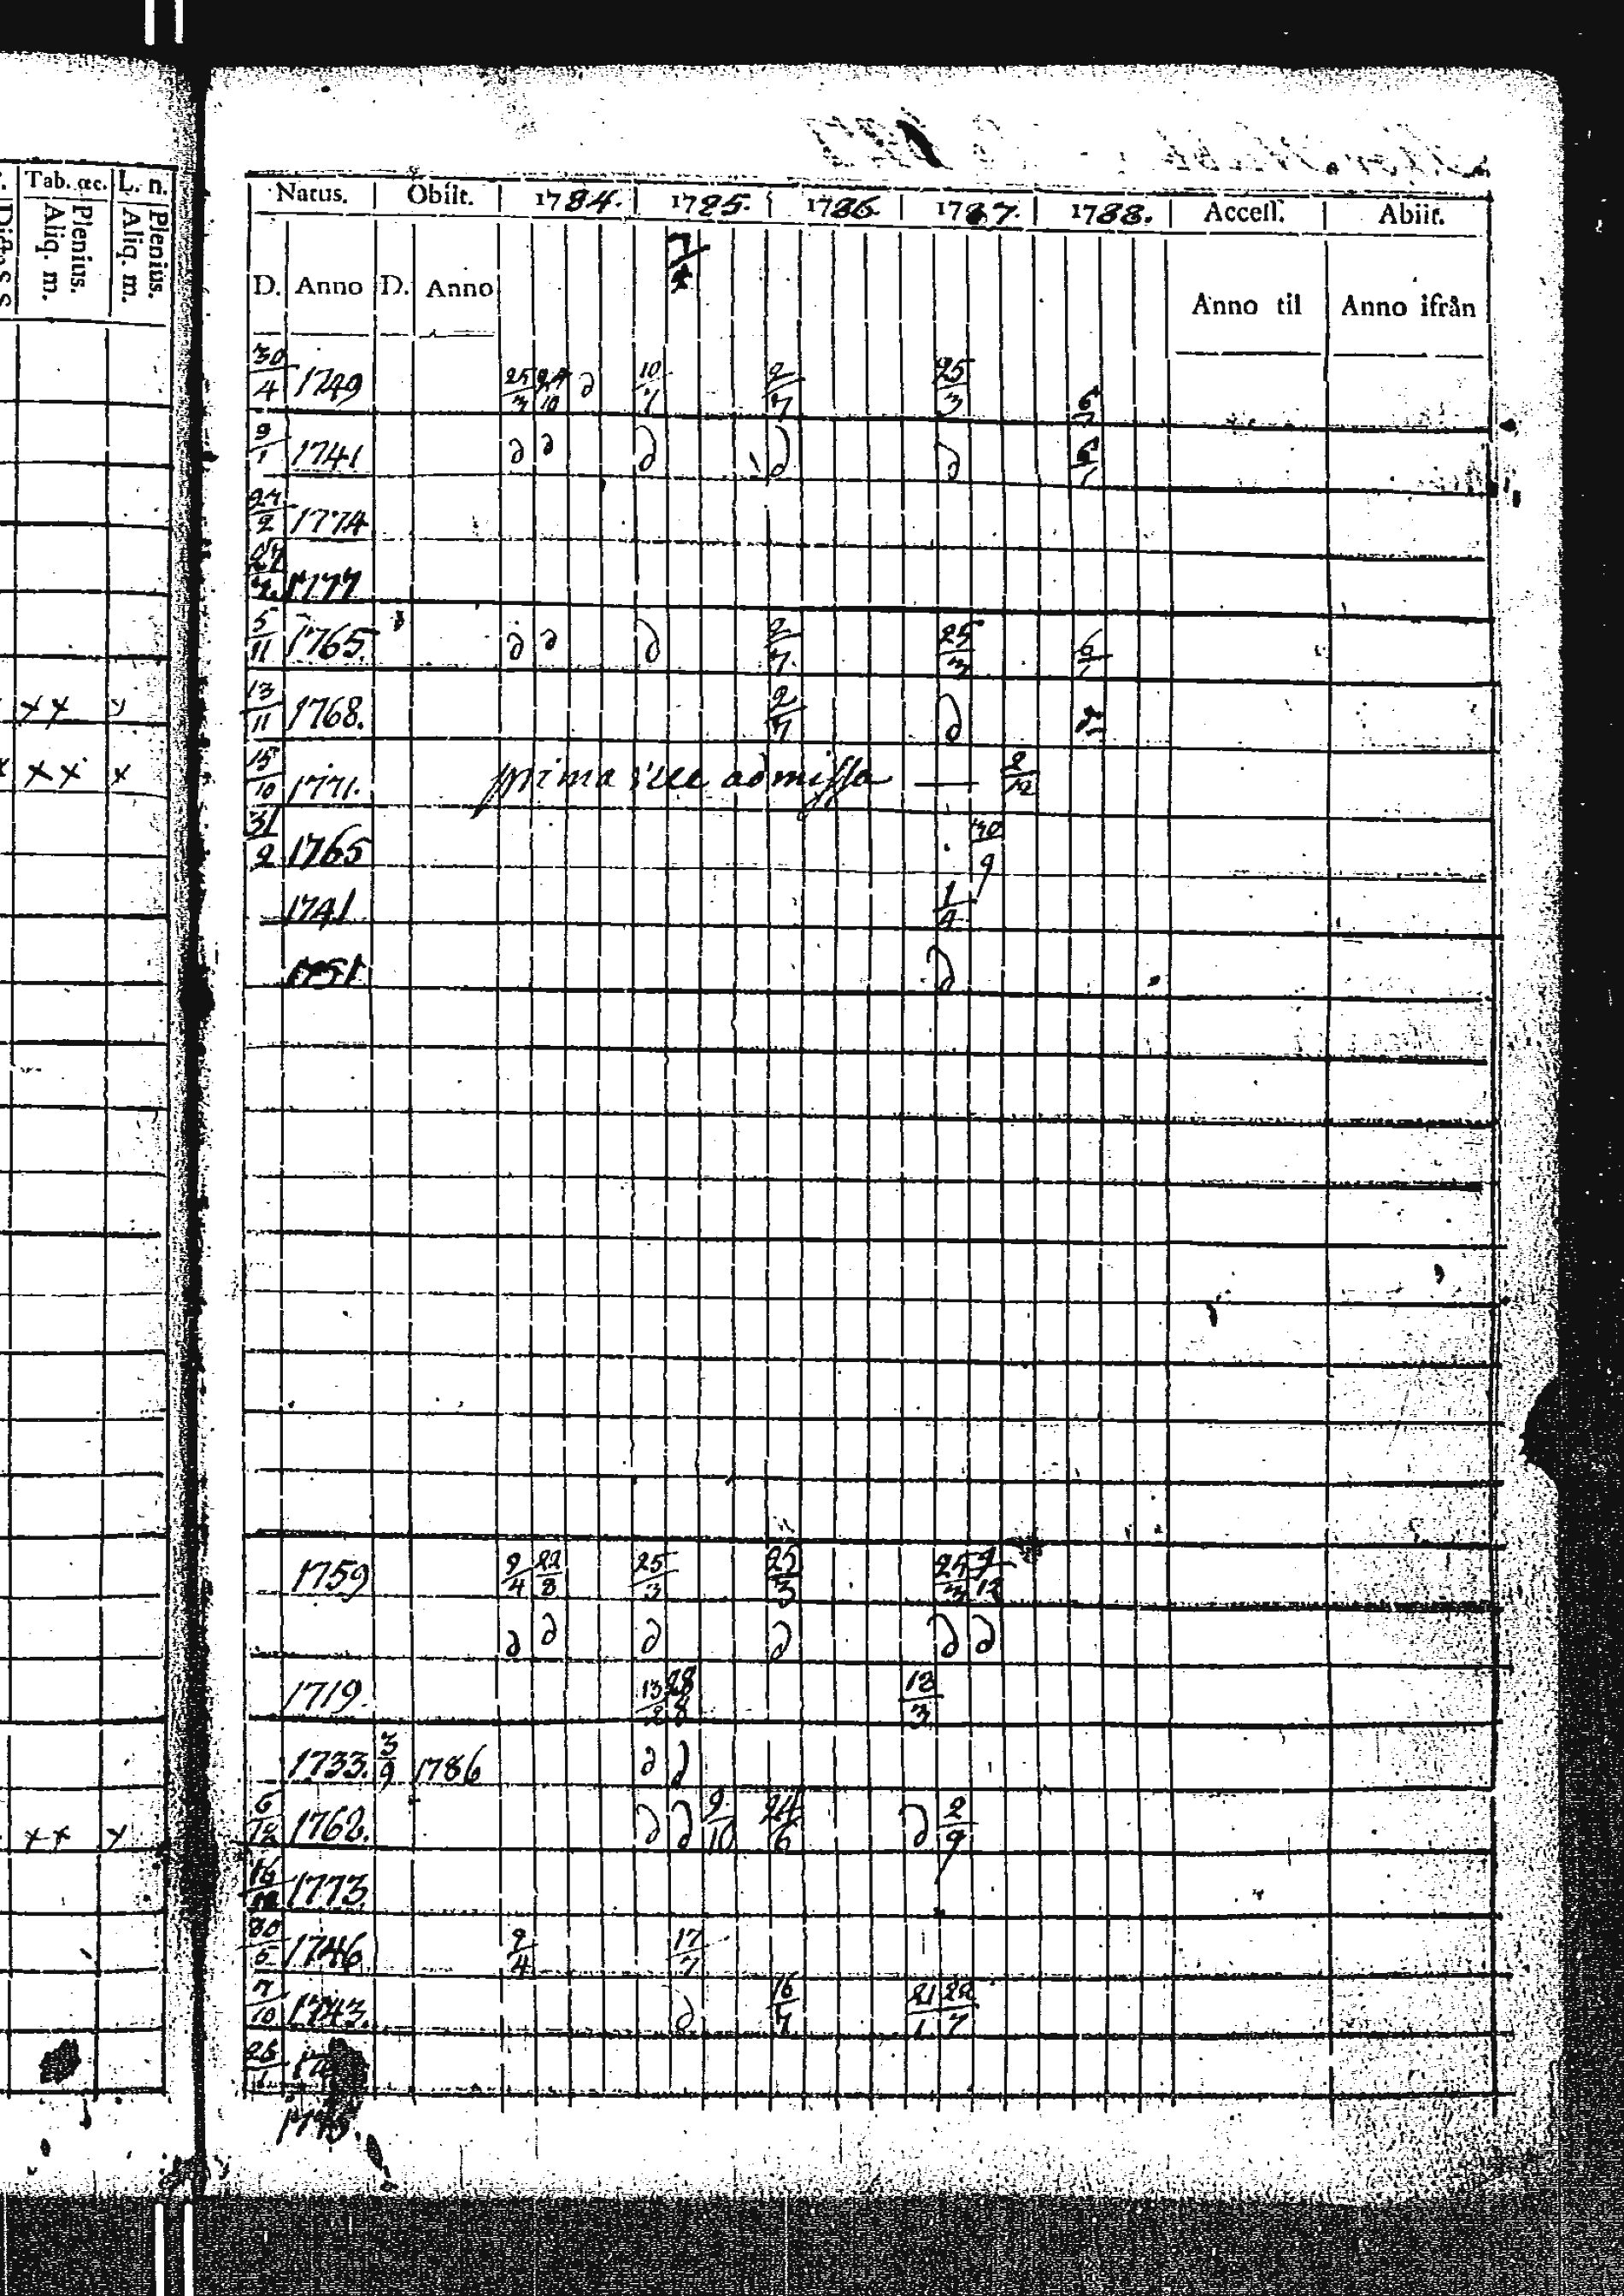 Tab. œc. L. n.
Plenius. Aliq. m. Plenius. Aliq. m.
Natus. Obiit. 1784. 1785. 1786. 1787. 1788. Access. Abiit.
D. Anno D. Anno Anno til Anno ifrån
30/4 1749 25/3 24/10 ∂ 10/7 2/7 25/3
9/1 1741 ∂ ∂ ∂ ∂ ∂
24/2 1774
1777
5/11 1765 ∂ ∂ ∂ 2/7 25/3 6/1
x x y 13/11 1768. 2/7 ∂
x x x x 15/10 1771. prima vice admissa — 2/12
31/2 1765 30/9
1741 1/4
1751 ∂
1759 9/4 22/8 25/3 25/3 25/3 9/12
∂ ∂ ∂ ∂ ∂ ∂
1719. 13/2 28/8 18/3
1733. 3/9 1786 ∂ ∂
x x y 6/12 1768. ∂ ∂ 9/10 24/6 ∂ 2/9
1773
30/5 1746 9/4 17/7
7/10 1743. ∂ 16/7 21/1 22/7
1745.